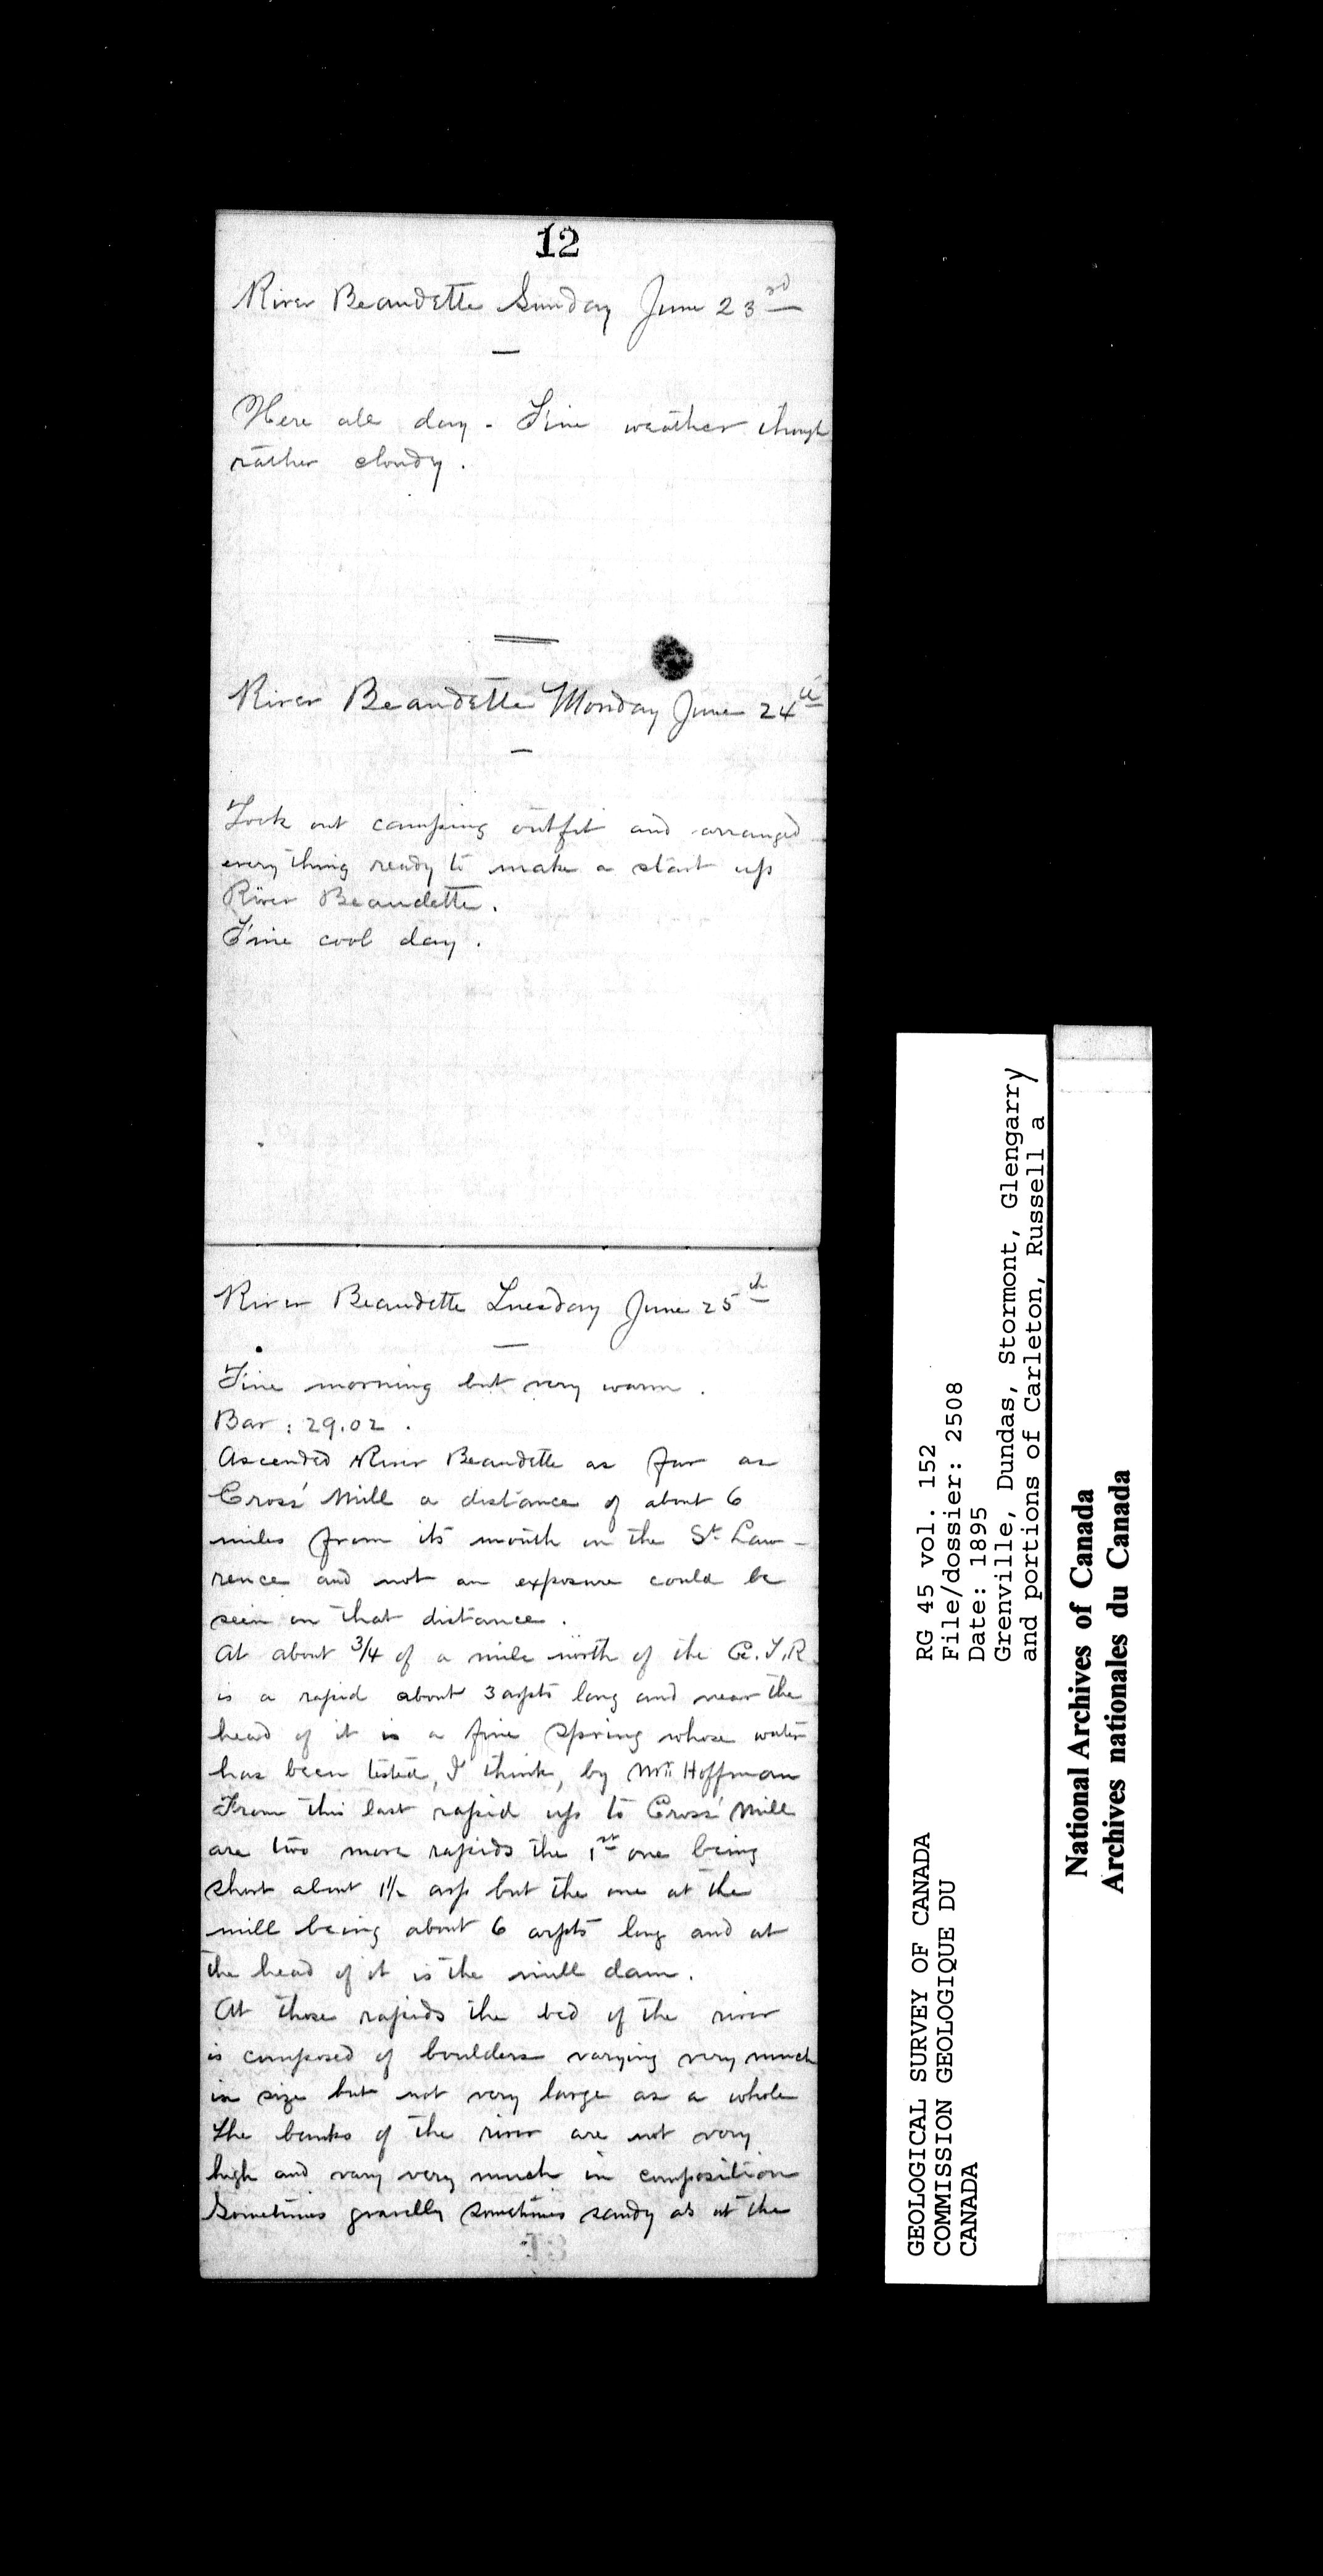 12
River Beaudette Sunday June 23rd
Here all day - Fine weather though
rather cloudy.
River Beaudette Monday June 24th
Took out camping outfit and arranged
every thing ready to make a start up
River Beaudette.
Fine cool day.
River Beaudette Tuesday June 25th
Fine morning but very warm.
Bar: 29.02.
Ascended River Beaudette as far as
Cross' Mill a distance of about 6
miles from its mouth on the St Law-
rence and not an exposure could be
seen on that distance.
At about 3/4 of a mile north of the G.T.R.
is a rapid about 3 arpts long and near the
head of it is a fine spring whose water
has been tested, I think, by Mr. Hoffman
From this last rapid up to Cross' Mill
are two more rapids the 1st one being
short about 1½ arp but the one at the
mill being about 6 arpts long and at
the head of it is the mill dam.
At those rapids the bed of the river
is composed of boulders varying very much
in size but not very large as a whole
The banks of the river are not very
high and vary very much in composition
Sometimes gravelly sometimes sandy as at the
GEOLOGICAL SURVEY OF CANADA
COMMISSION GEOLOGIQUE DU
CANADA
RG 45 vol. 152
File/dossier: 2508
Date: 1895
Grenville, Dundas, Stormont, Glengarry
and portions of Carleton, Russell a
National Archives of Canada
Archives nationales du Canada